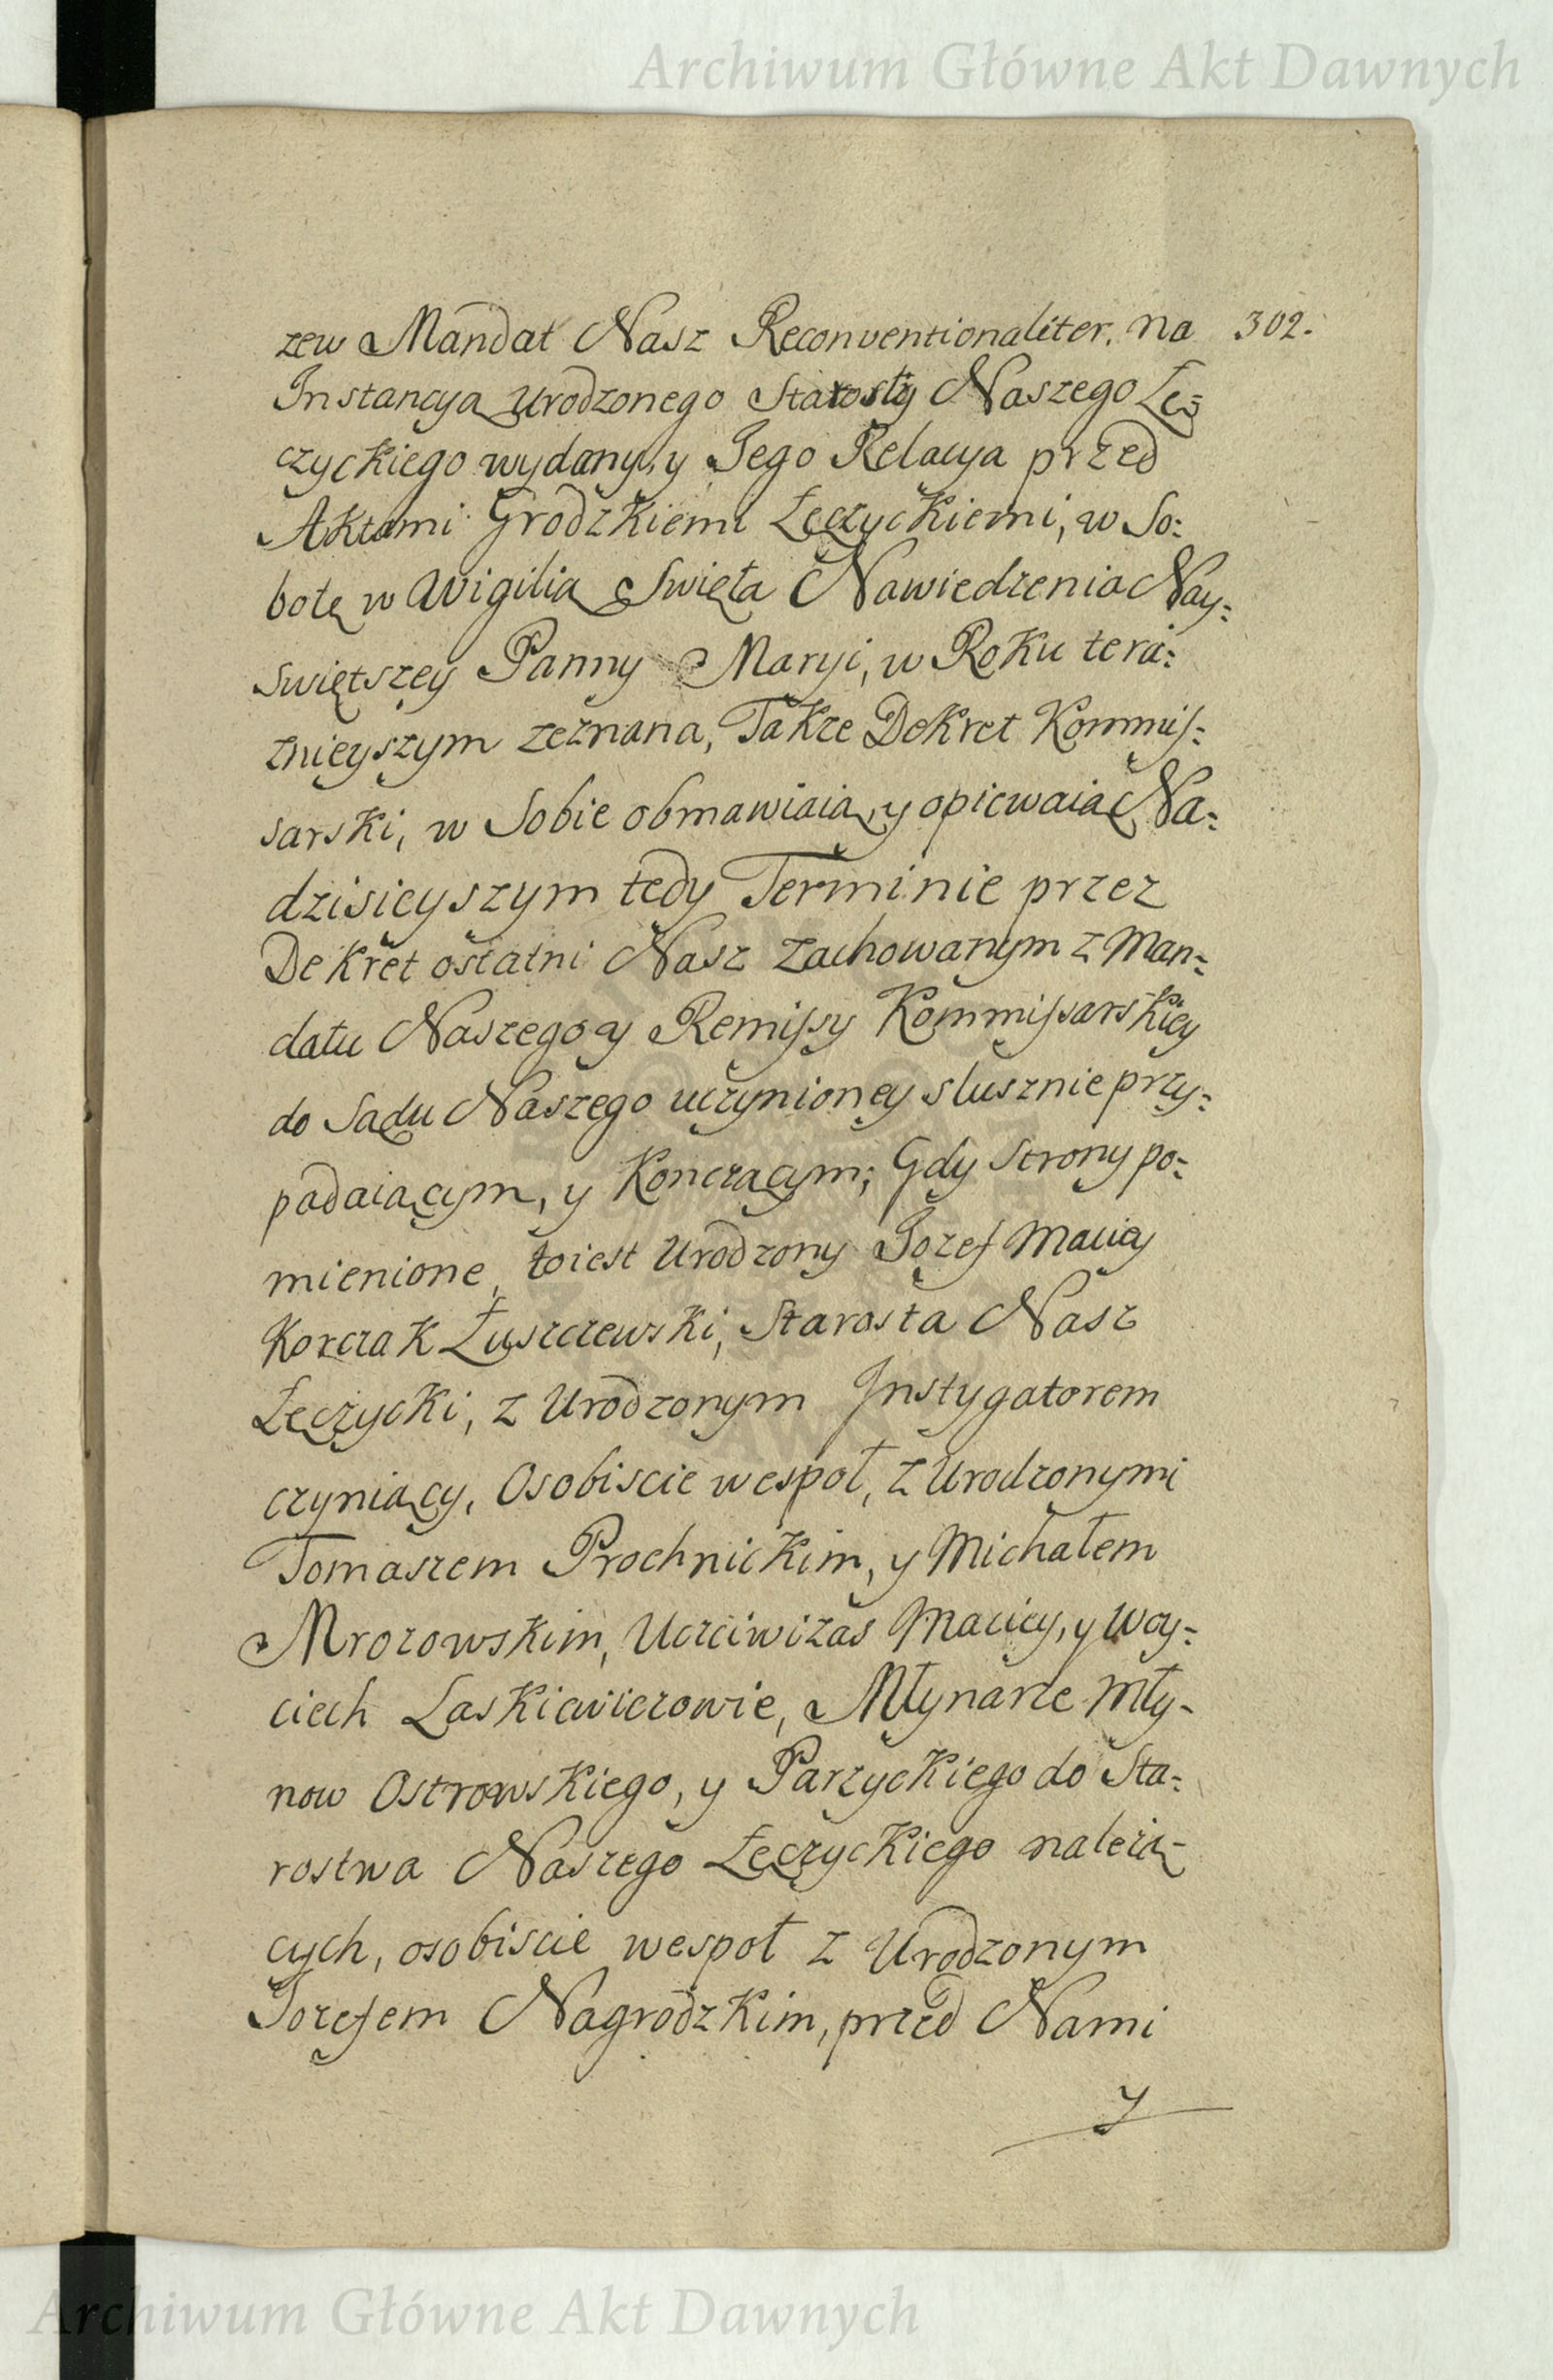 Archiwum Główne Akt Dawnych
302.
zew Mandat Nasz Reconventionaliter, na
Instancyą Urodzonego Starosty Naszego Łę=
czyckiego wydany, y Jego Relacya przed
Aktami Grodzkiemi Łęczyckiemi, w So:
botę w Wigilią Swięta Nawiedzenia Nay:
swiętszey Panny Maryi, w Roku tera:
znieyszym zeznana, Takze Dekret Kommis:
sarski, w Sobie obmawiaią, y opiewaią Na:
dzisieyszym tedy Terminie przez
Dekret ostatni Nasz zachowanym z Man=
datu Naszego y Remissy Kommissarskiey
do Sądu Naszego uczynioney slusznie przy:
padaiącym, y Konczącym; Gdy Strony po=
mienione, toiest Urodzony Jozef Maciey
Korczak Łuszczewski, Starosta Nasz
Łęczycki, z Urodzonym Instygatorem
czyniący, Osobiscie wespoł, z Urodzonymi
Tomaszem Prochnickim, y Michałem
Mrozowskim, Uczciwizas Maciey, y Woy:
ciech Laskiewiczowie, Młynarze Mły-
now Ostrowskiego, y Parzyckiego do Sta=
rostwa Naszego Łęczyckiego nalezą-
cych, osobiscie wespoł z Urodzonym
Jozefem Nagrodzkim, przed Nami
y
Archiwum Główne Akt Dawnych